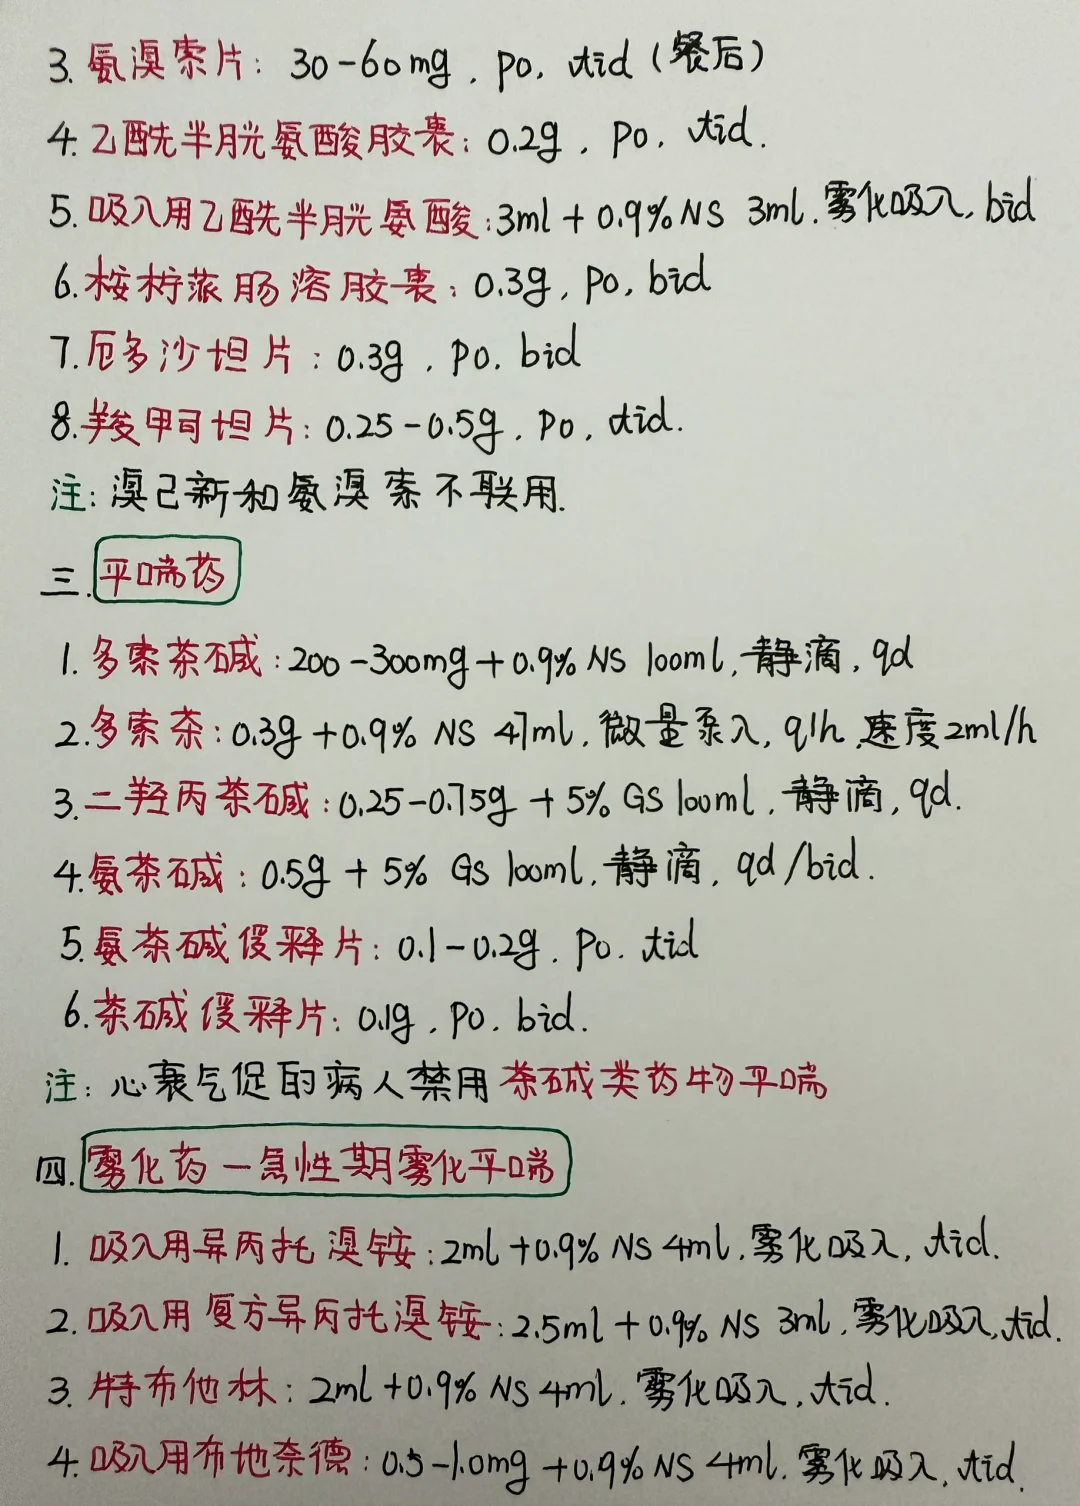 3. 氨溴索片: 30-60mg, po, tid (餐后)
4. 乙酰半胱氨酸胶囊: 0.2g, po, tid.
5. 吸入用乙酰半胱氨酸: 3ml + 0.9% NS 3ml. 雾化吸入, bid
6. 桉柠蒎肠溶胶囊: 0.3g, po, bid
7. 厄多沙坦片: 0.3g, po. bid
8. 羧甲司坦片: 0.25-0.5g, po, tid.
注: 溴己新和氨溴索不联用.
三. 平喘药
1. 多索茶碱: 200-300mg + 0.9% NS 100ml, 静滴, qd
2. 多索茶: 0.3g + 0.9% NS 47ml, 微量泵入, q1h, 速度2ml/h
3. 二羟丙茶碱: 0.25-0.75g + 5% GS 100ml, 静滴, qd.
4. 氨茶碱: 0.5g + 5% GS 100ml, 静滴, qd/bid.
5. 氨茶碱缓释片: 0.1-0.2g, po. tid
6. 茶碱缓释片: 0.1g, po. bid.
注: 心衰气促的病人禁用茶碱类药物平喘
四. 雾化药—急性期雾化平喘
1. 吸入用异丙托溴铵: 2ml + 0.9% NS 4ml, 雾化吸入, tid.
2. 吸入用复方异丙托溴铵: 2.5ml + 0.9% NS 3ml, 雾化吸入, tid.
3. 特布他林: 2ml + 0.9% NS 4ml. 雾化吸入, tid.
4. 吸入用布地奈德: 0.5-1.0mg + 0.9% NS 4ml. 雾化吸入, tid.